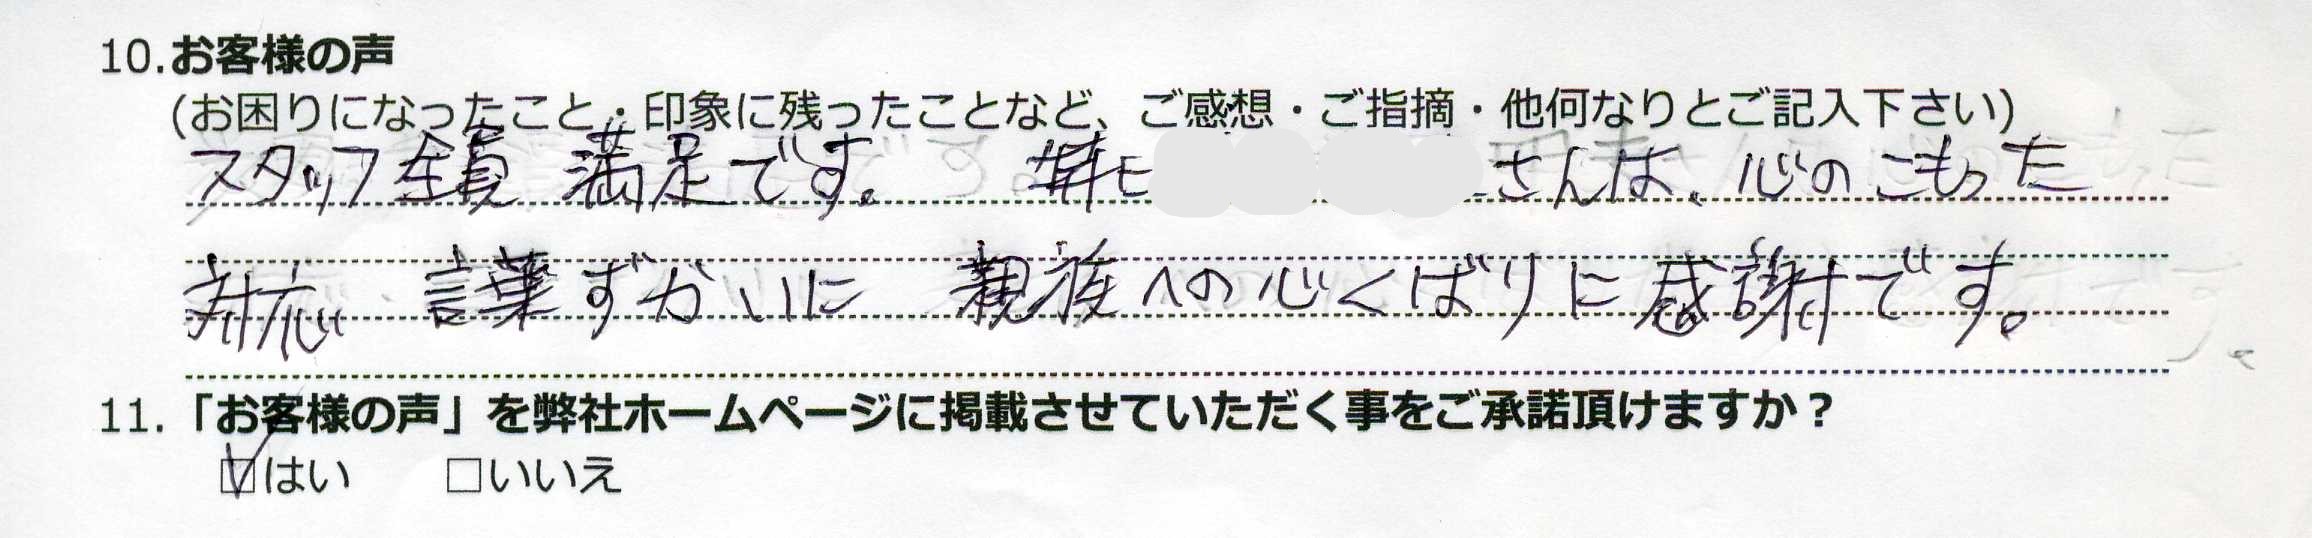 10.お客様の声
(お困りになったこと・印象に残ったことなど、ご感想・ご指摘・他何なりとご記入下さい)
スタッフ全員 満足です。 さんは、心のこもった
対応 言葉ずかいに 親族への心くばりに感謝です。
11.「お客様の声」を弊社ホームページに掲載させていただく事をご承諾頂けますか？
☑はい □いいえ